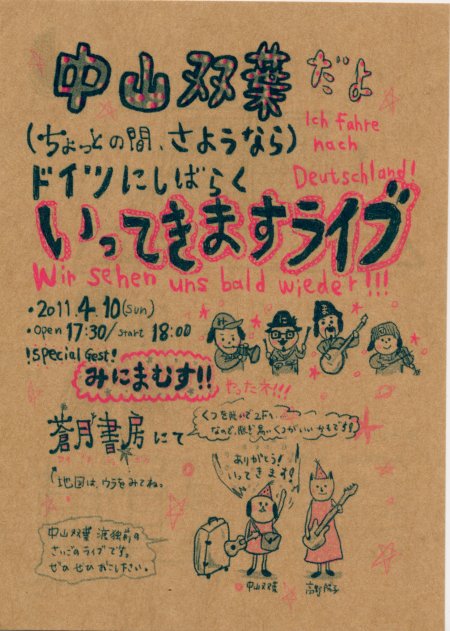 中山双葉 だよ
(ちょっとの間、さようなら)
Ich fahre
nach
Deutschland!
ドイツにしばらく
いってきますライブ
Wir sehen uns bald wieder!!!
・2011.4.10(sun)
・open 17:30/start 18:00
!special Gest!
みにまむす!!
やったネ!!!
蒼月書房にて
くつを脱いで2Fへ、
なので、脱ぎ易いくつがいいかもです!
「地図は、ウラをみてね。
ありがとう!
いってきます!
中山双葉 渡独前の
さいごのライブです。
ぜひぜひおこしください。
中山双葉